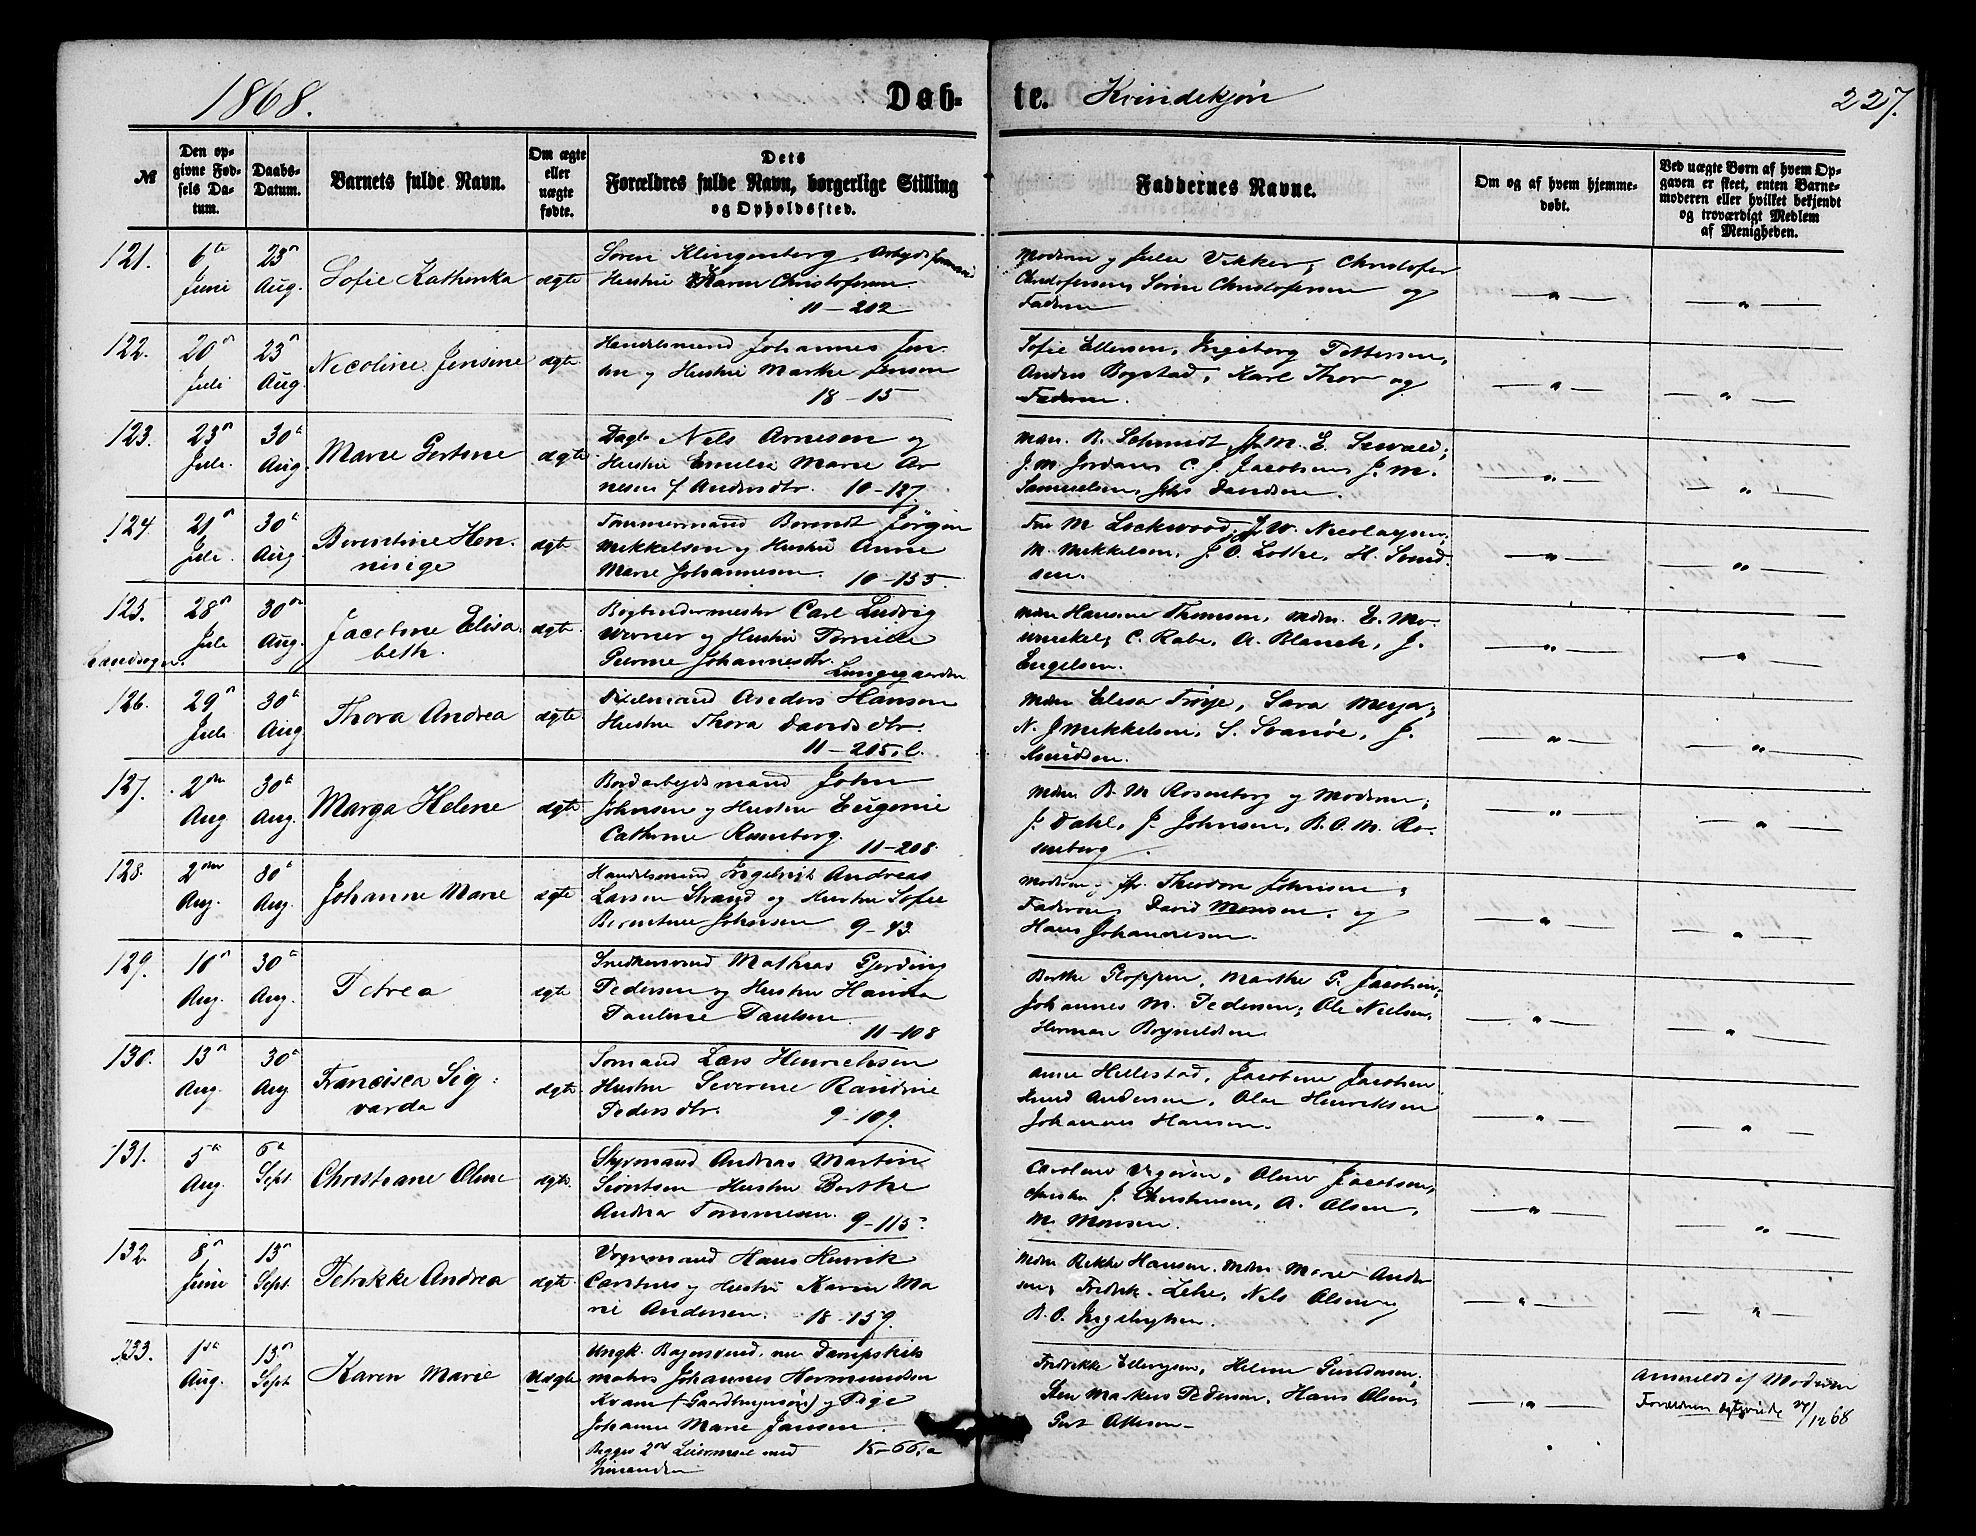 1868. Døb- te. Kvindekjøn 227.
№
Den opgivne Fødsels Datum.
Daabs-Datum.
Barnets fulde Navn.
Om ægte eller uægte fødte.
Dets Forældres fulde Navn, borgerlige Stilling og Opholdssted.
Faddernes Navne.
Om og af hvem hjemmedøbt.
Ved uægte Børn af hvem Opgaven er skeet, enten Barnemoderen eller hvilket bekjendt og troværdigt Medlem af Menigheden.
121. 6te Juni 23 Aug. Sofie Kathinka ægte
Søren Klingenberg, Arbeids
Hustru Karen Christofersen
11-202
Moderen og Julie Vikker, Christofer
Christofersen, Søren Christofersen og
Faderen
122. 20 Juli 23 Aug. Nicoline Jensine ægte
Handelsmand Johannes Jen
sen og Hustru Marthe Jensen
18-15
Sofie Ellersen, Ingeborg Pettersen,
Anders Bogstad, Karl Thor og
Faderen.
123. 23 Juli. 30 Aug. Marie Gertine ægte
Nils Arnesen og
Hustru Emilie Marie Ar
nesen f. Andersdtr. 10-127.
R. Schmidt, J. M. E. Sewald,
J. M. Jordan, C. J. Jacobsen, J. M.
Samuelsen, Davidsen.
124. 21 Juli. 30 Aug. Berentine Hen-
ninige ægte
Tømmermand Berendt Jørgen
Mikkelsen og Hustru Anne
Marie Johannesen. 10-155
Fru M Lockwood, J. W. Nicolaysen,
M. Mikkelsen, J. O. Lothe, H. Svend-
sen.
125. Landsogn. 28 Juli 30 Aug. Jacobine Elisa
beth. ægte
Bogbindermester Carl Ludvig
Werner og Hustru Pernille
Johannesdtr. Lungegaarden
Mdm Hansine Thomsen, Mdm. E. Mo-
winckel, C. Rabe, A. Blauch, J.
Engelsen.
126. 29 Juli 30 Aug Thora Andrea ægte
Anders Hansen
Hustru Thora Davidsdtr.
11-205, C.
Mdm Elisa Trøye, Sara Meyer,
N. J Mikkelsen, S. Svanøe, J.
Knudsen.
127. 2den Aug 30 Aug. Marga Helene ægte
Bordarbeidsmand John
Johnsen og Hustru Eugenie
Cathrine Rosenberg. 11-208.
Mdm B. M Rosenberg og Moderen,
J. Dahl, J. Johnsen, B. O. M. Ro-
senberg.
128. 2den Aug. 30 Aug. Johanne Marie ægte
Handelsmand Ingebrigt Andreas
Larsen Strand og Hustru Sofie
Berentine Johnsen 9-43.
Moderen, Theodora Johnsen,
Faderen, David Monsen, og
Hans Johannesen.
129. 10 Aug. 30 Aug. Petrea ægte
Snedkersvend Mathias Gjerding
Pedersen og Hustru Hanna
Pauline Paulsen. 11-108
Berthe Gloppen, Marthe G. Jacobsen,
Johannes M. Pedersen, Ole Nielsen,
Herman Bognildsen.
130. 13 Aug. 30 Aug Francisca Sig-
varda ægte
Sømand Lars Henrichsen
Hustru Severine Randine
Pedersdtr. 9-109.
Anne Hillestad, Jacobine Jacobsen
Knud Andersen, Olai Henriksen
Johannes Hansen.
131. 5te Aug. 6te Sept. Christiane Oline ægte.
Styrmand Andreas Martin
Sivertsen Hustru Berthe
Andrea Tommesen. 9-115
Caroline, Oline Jacobsen,
J. Christensen, A. Olsen,
M. Monsen.
132. 8 Juni 13 Sept. Petrikke Andrea ægte
Vognmand Hans Henrik
Carstens og Hustru Karen Ma
rie Andersen. 18-159.
Mdm Rikke Hansen, Mdm Marie Ander
sen, Fredrik Lehe, Nils Olsen,
B. O. Ingebrigtsen.
133. 1ste Aug. 13 Sept Karen Marie Uægte
Ungk. Bagersvend, nu Dampskibs
matros Johannes Hermundsen
Kvam og Pige
Johanne Marie Jansen.
Begges 2det Leiermaal med 15-66, a
hinanden
Fredrikke Ellingsen, Helene Gundersen,
Sten Markus Pedersen, Hans Olsen,
Gert Ottesen
Anmeldt af Moderen
Forældrene ægteviede 27/12 68